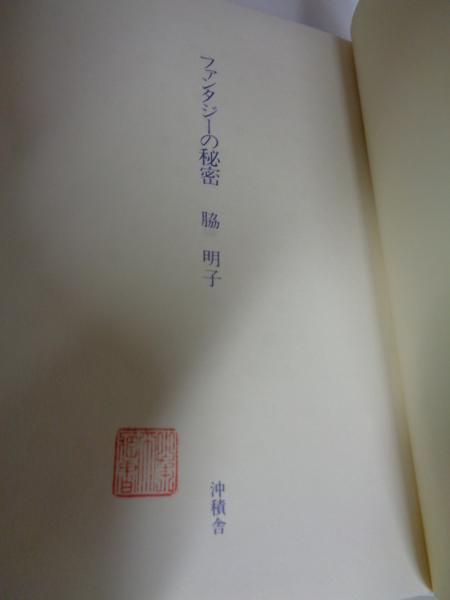 ファンタジーの秘密
脇 明子
沖積舎